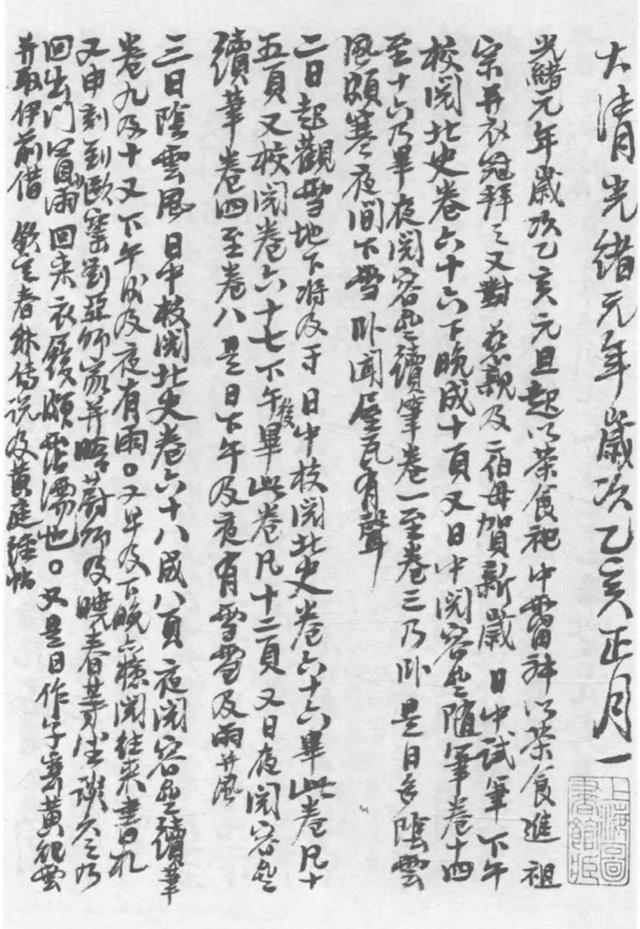 大清光緒元年歲次乙亥正月一
光緒元年歲次乙亥元旦起以茶食祀中霤神以茶食進 祖
宗并衣冠拜之又對 慈親及二伯母賀新歲 日中試筆下午
校閱北史卷六十六下晚成十頁又日中閱容齋隨筆卷十四
至十六乃畢夜閱容齋續筆卷一至卷三乃卧是日多陰雲
風頗寒夜間下雪卧聞屋瓦有聲
二日起觀雪地下將及寸 日中校閱北史卷六十六畢此卷凡十
五頁又校閱卷六十七下午後畢此卷凡十二頁又日夜閱容齋
續筆卷四至卷八是日下午及夜有雪雪及雨并風
三日陰雲風 日中校閱北史卷六十八成八頁夜閱容齋續筆
卷九及十又下午後及夜有雨。又早及下晚閱往來書札
又申刻到歐窯劉亞師家并晤蔚師及曉春等坐談久之乃
回出門冒雨回來衣履頗霑濡也。又是日作字寄黃杞雲
并取伊前借 欽定春秋傳說及黃庭經帖
上海圖
書館藏